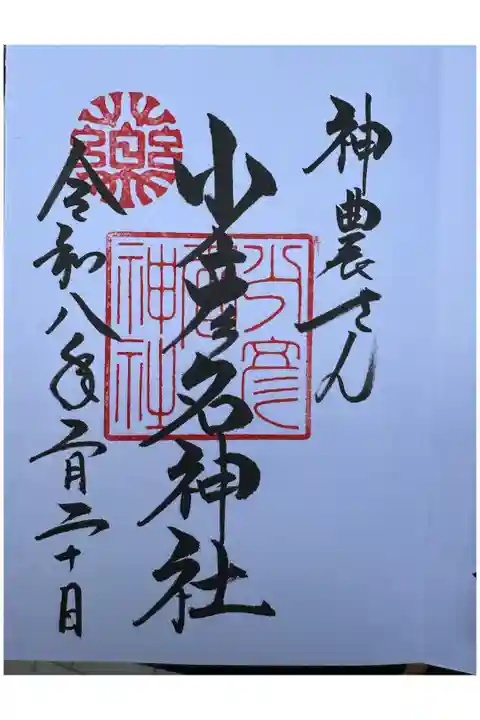 神農さん
少彦名神社
令和八年二月二十日
薬
少彦名神社